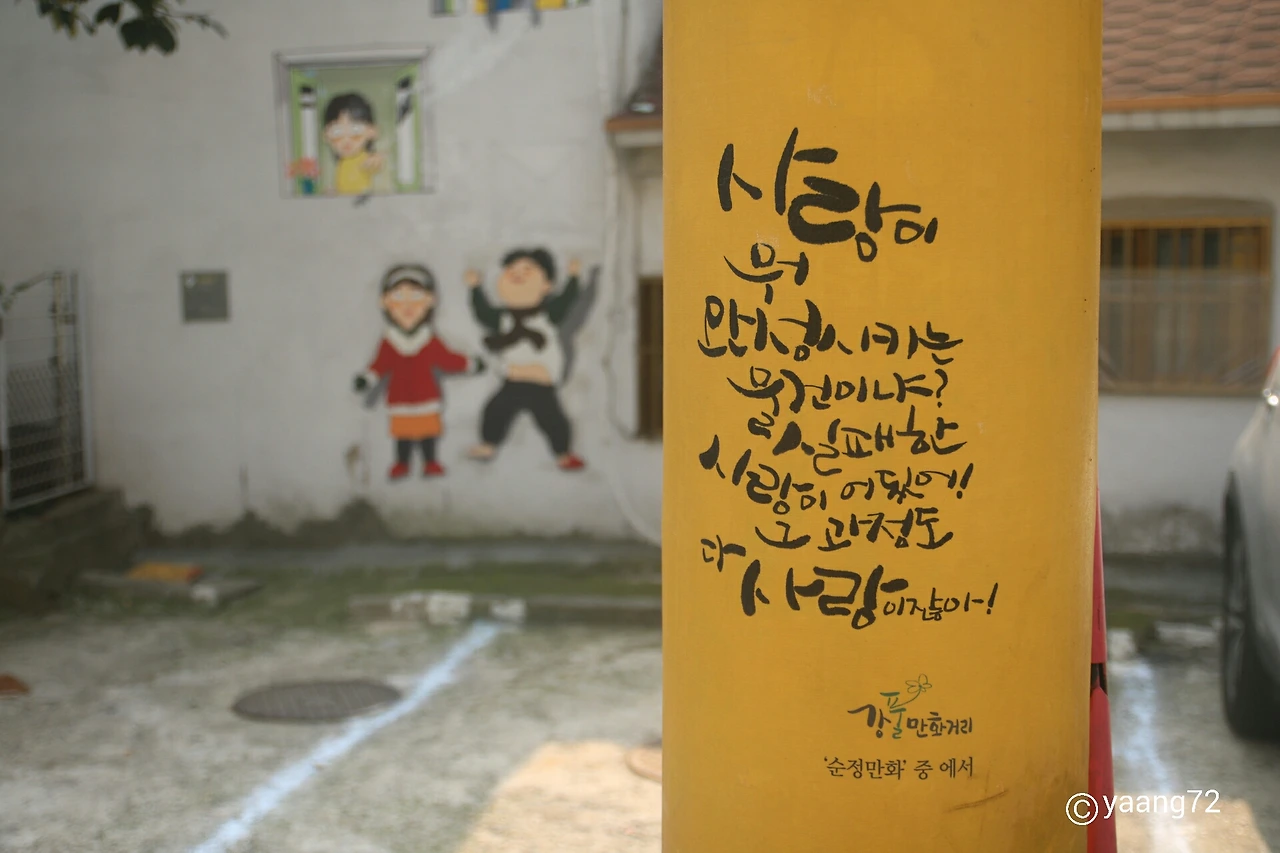 사랑이
뭐
완성시키는
물건이냐?
실패한
사랑이 어딨어!
그 과정도
다 사랑이잖아!
강풀만화거리
'순정만화' 중 에서
© yaang72